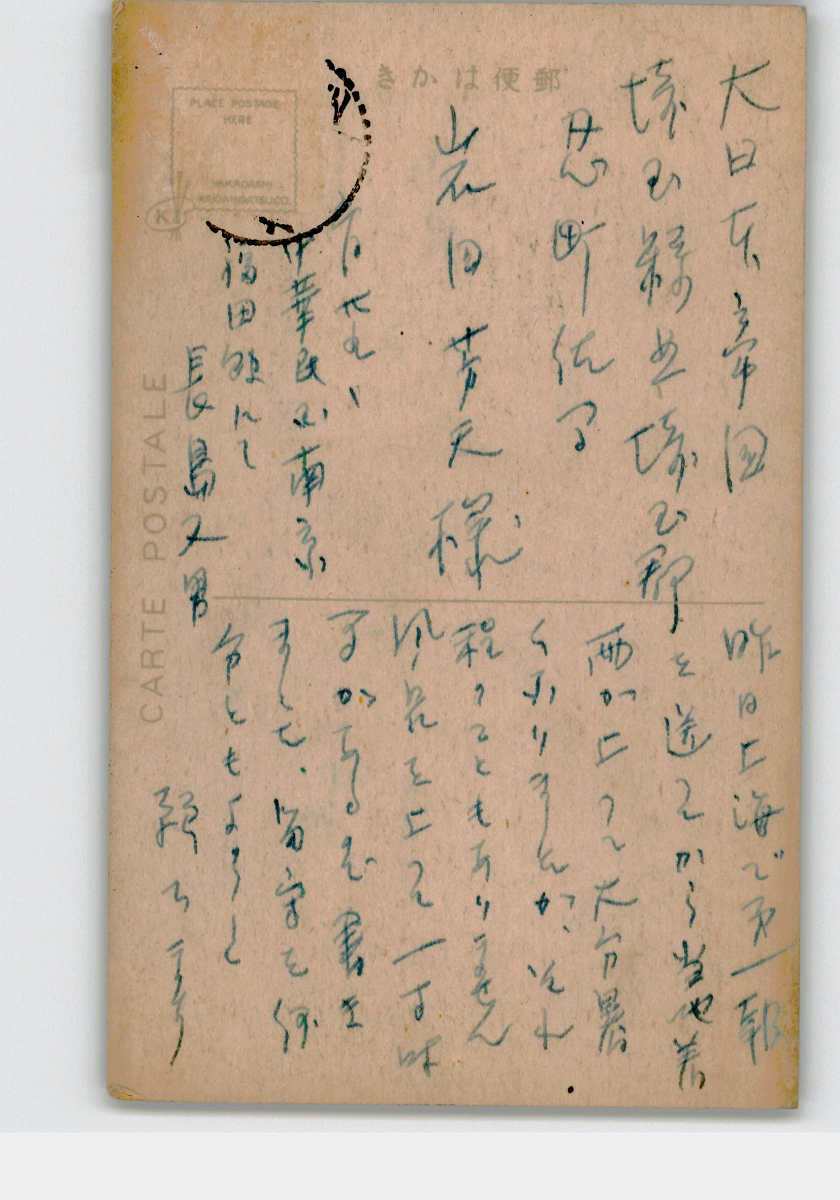 郵便はかき
大日本帝国
埼玉縣北埼玉郡
忍町佐間
岩田芳天様
中華民国南京
福田館にて
長島又男
昨日上海で第一報
を送つてから当地着
雨が上つて大分暑
くなりましたが、それ
程のこともありません
風呂を上つて一寸時
間がある故 書き
ました、留守を何
分ともよろしく
頼ミます
PLACE POSTAGE
HERE
WAKAGASHI
CARTE POSTALE